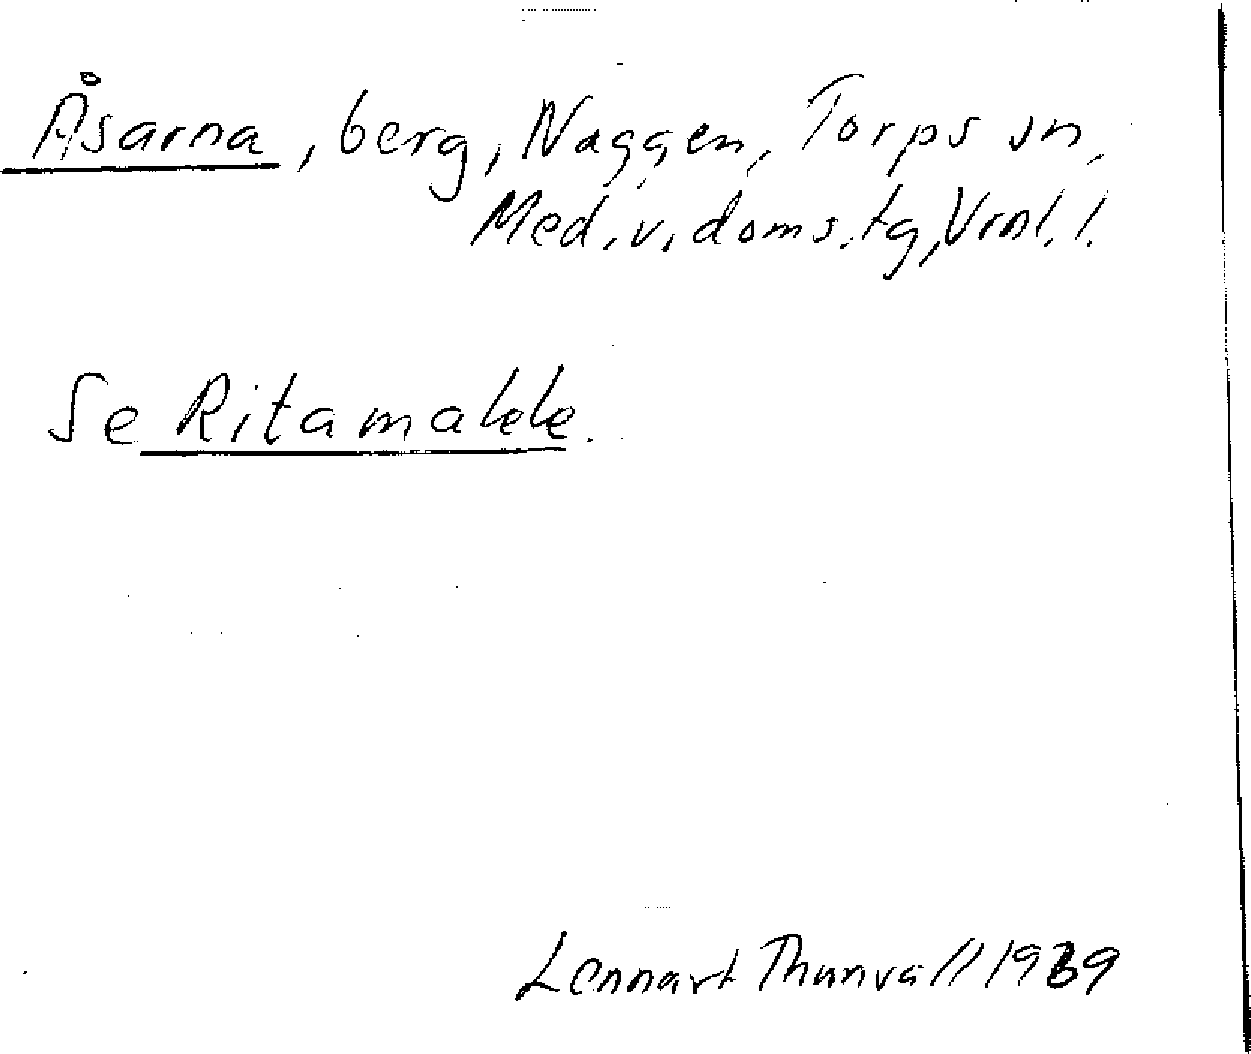 Åsarna, berg, Naggen, Torps sn,
Med. v. doms. tg, Vrnl. l.
Se Ritamakk.
Lennart Thunvall 1939